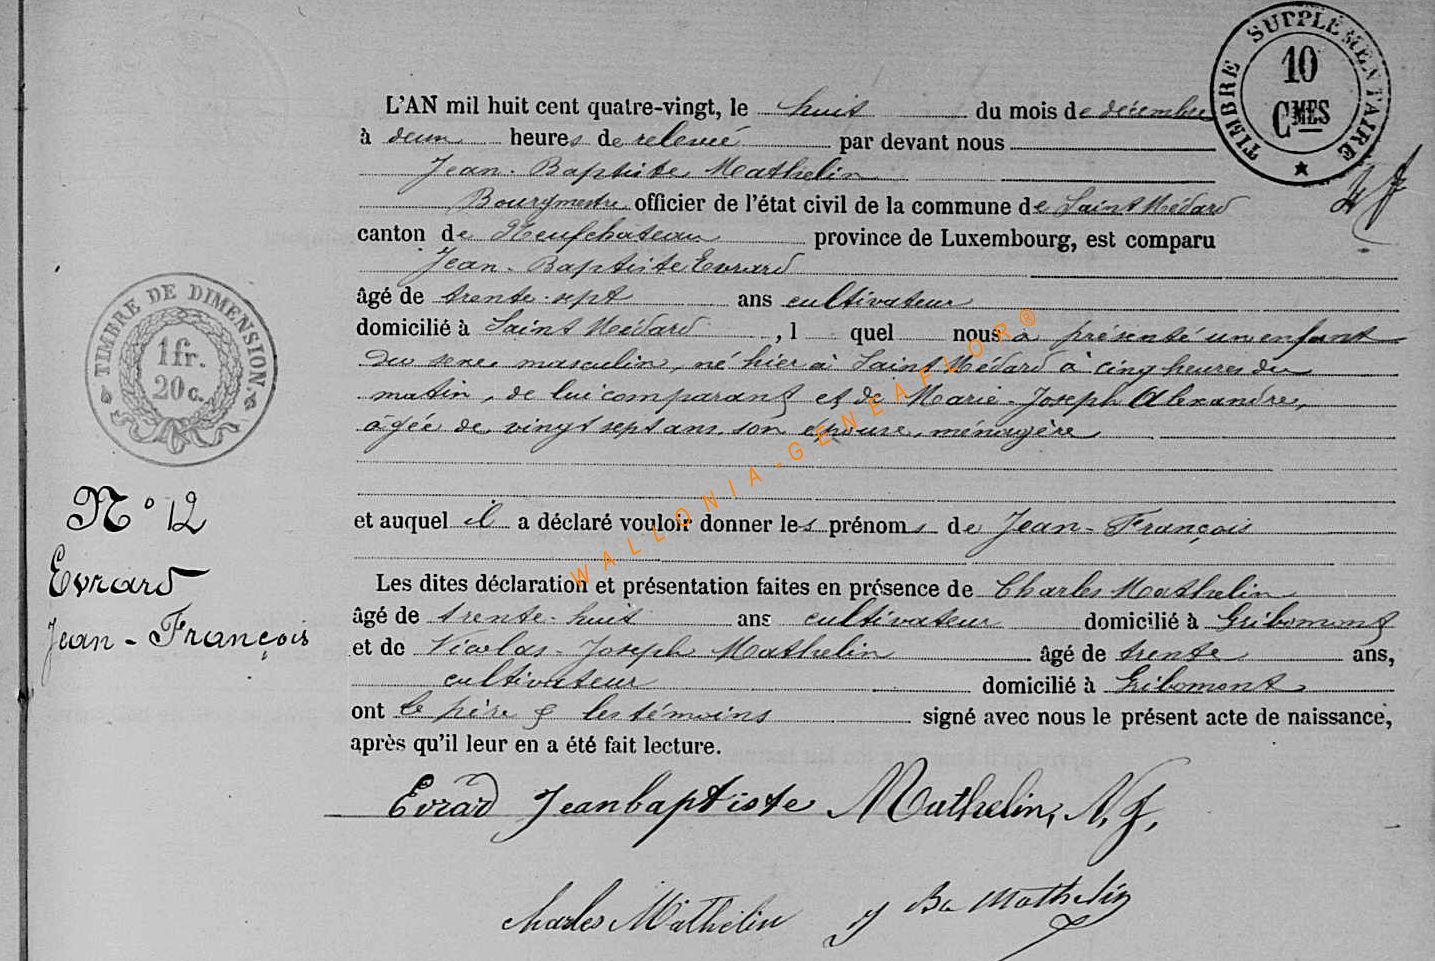 TIMBRE SUPPLÉMENTAIRE
10
CMES
L'AN mil huit cent quatre-vingt, le huit du mois de décembre
à deux heures de relevée par devant nous
Jean-Baptiste Mathelin
Bourgmestre officier de l'état civil de la commune de Saint Médard
canton de Neufchateau province de Luxembourg, est comparu
Jean-Baptiste Evrard
âgé de trente-sept ans cultivateur
domicilié à Saint Médard , l quel nous a présenté un enfant
du sexe masculin, né hier à Saint Médard à cinq heures du
matin, de lui comparant et de Marie-Joseph Alexandre,
âgée de vingt sept ans, son épouse, ménagère
et auquel il a déclaré vouloir donner les prénoms de Jean-François
Les dites déclaration et présentation faites en présence de Charles Mathelin
âgé de trente-huit ans cultivateur domicilié à Gribomont
et de Nicolas-Joseph Mathelin âgé de trente ans,
cultivateur domicilié à Gribomont
ont le père & les témoins signé avec nous le présent acte de naissance,
après qu'il leur en a été fait lecture.
Evrard Jeanbaptiste Mathelin, N. J.
Charles Mathelin J Bte Mathelin
TIMBRE DE DIMENSION.
1 fr.
20 c.
N° 12
Evrard
Jean-François
WALLONIA-GENEAFLOR®